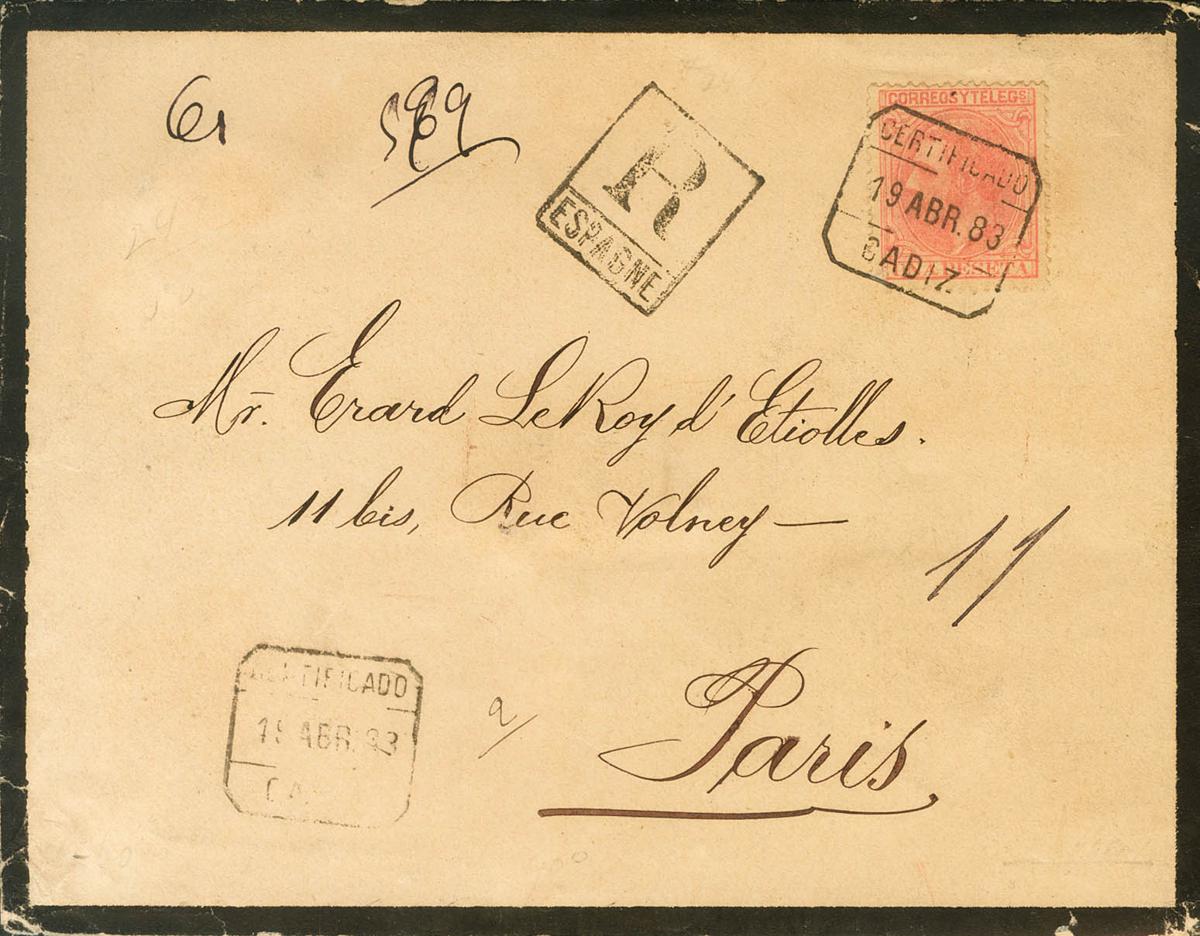 61 569
R
ESPAGNE
CORREOS Y TELEGS
CERTIFICADO
19 ABR. 83
CADIZ
PESETA
Mr. Erard LeRoy d'Etiolles.
11 bis, Rue Volney —
11
CERTIFICADO
19 ABR. 83
CA
a/ Paris